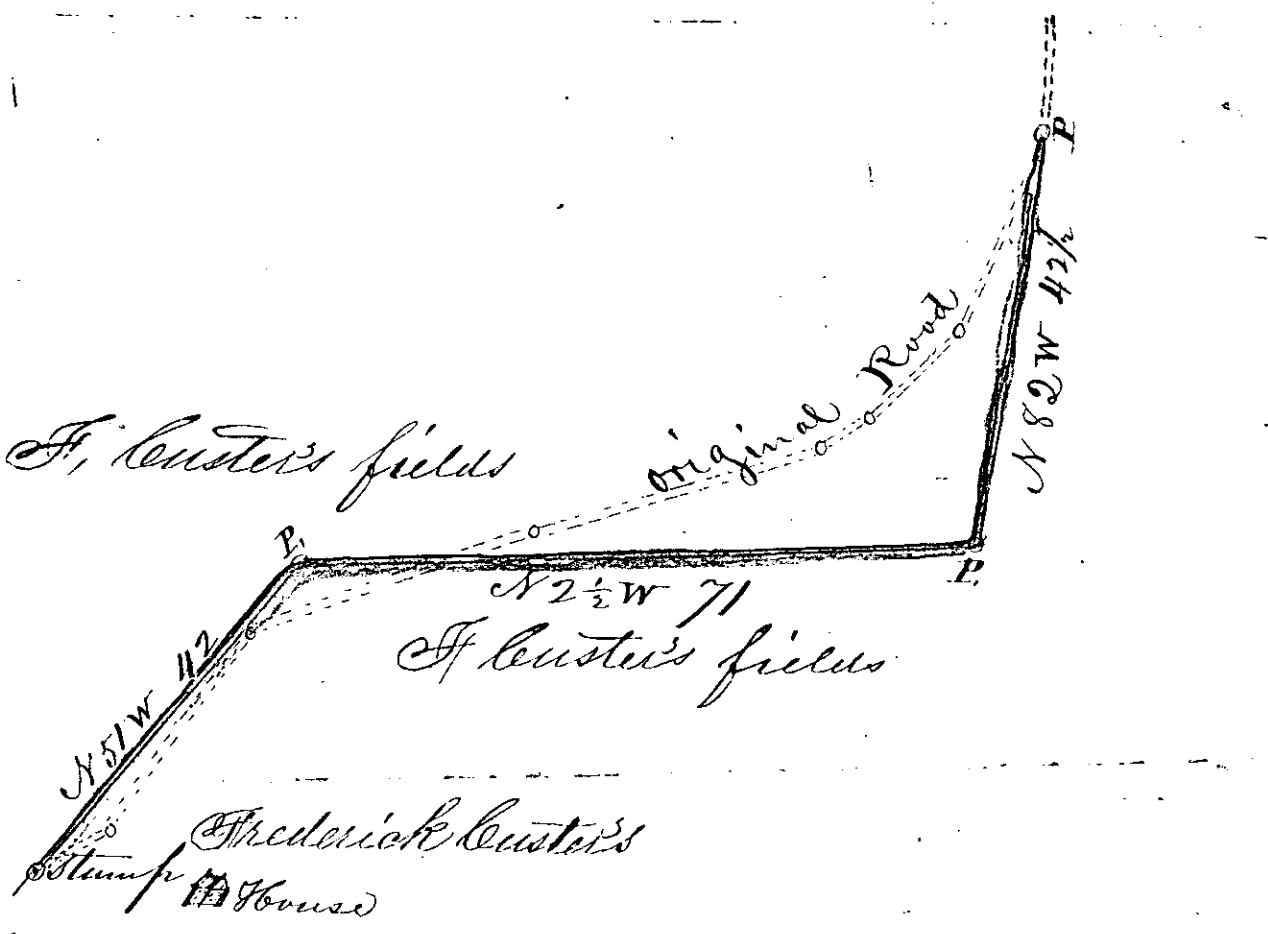 P
N 82 W 42½
original Road
F, Custer's fields
P,
P,
N 2 ½ W 71
F Custer's fields
N 51 W 42
Frederick Custer's
Stump
House